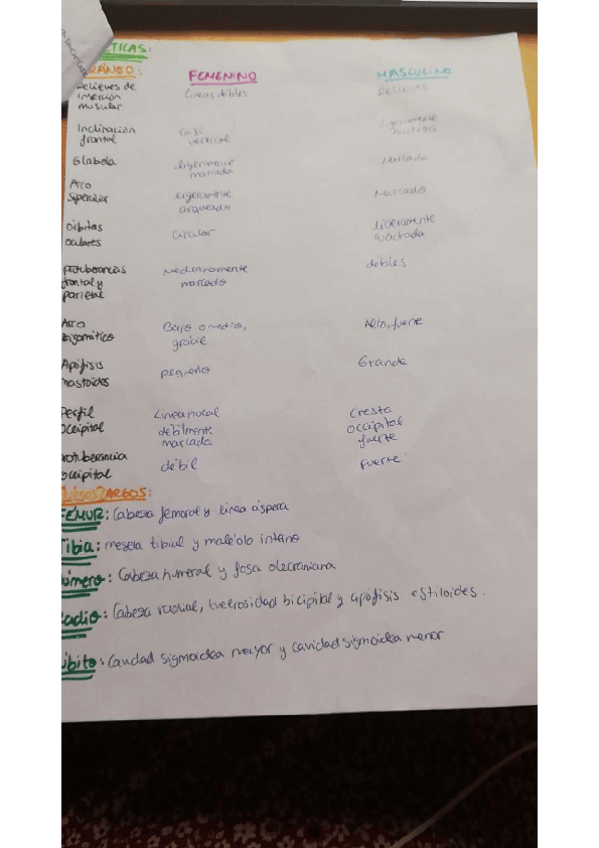 TICAS:
CRÁNEO: FEMENINO MASCULINO
Relieves de inserción muscular Líneas débiles Relieves
Inclinación frontal Casi vertical Ligeramente
Glabela ligeramente marcada Marcada
Arco Superciliar Ligeramente arqueado Marcado
órbitas oculares Circular Ligeramente cuadrada
protuberancias frontal y parietal Medianamente marcado débiles
Arco zigomático Bajo o medio, grácil Alto, fuerte
Apófisis mastoides pequeño Grande
Perfil occipital Línea nucal débilmente marcada Cresta occipital fuerte
protuberancia occipital débil Fuerte
HUESOS LARGOS:
FÉMUR: Cabeza femoral y línea áspera
Tibia: meseta tibial y maléolo interno
Húmero: Cabeza humeral y fosa olecraniana
Radio: Cabeza radial, tuberosidad bicipital y apófisis estiloides.
Cúbito: Cavidad sigmoidea mayor y cavidad sigmoidea menor